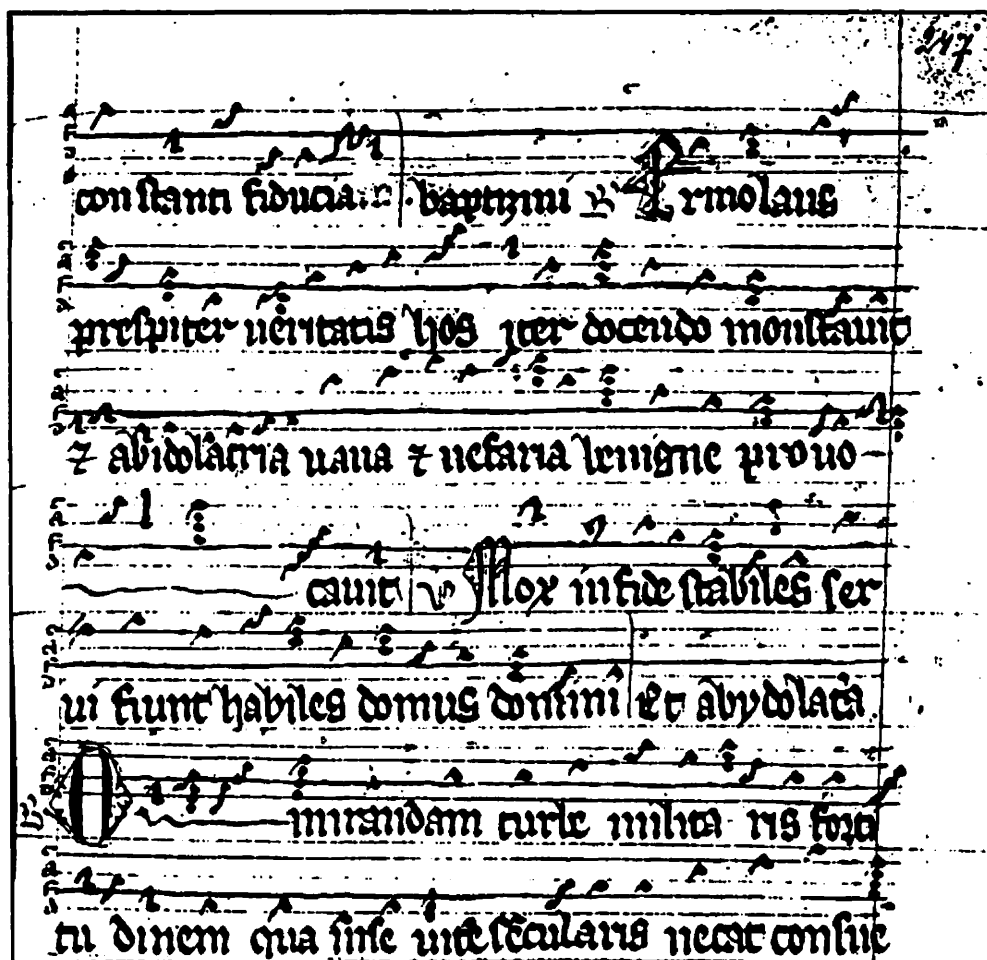 247
constanti fiducia baptizmi R Ermolaus
prespiter ueritatis hos iter docendo monstrauit
⁊ abidolatria uana ⁊ nefaria benigne prouo
cauit V Mox in fide stabiles ser
ui fiunt habiles domus domini Et abydolatᷓa
O mirandam turbe milita ris forti
tu dinem qua sine uite secularis necat consue